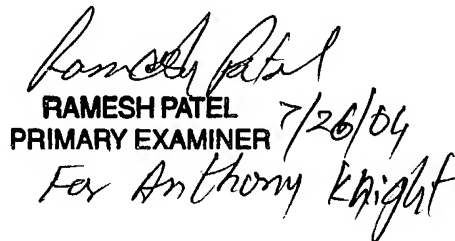 Ramesh Patel
RAMESH PATEL 7/26/04
PRIMARY EXAMINER
For Anthony Knight